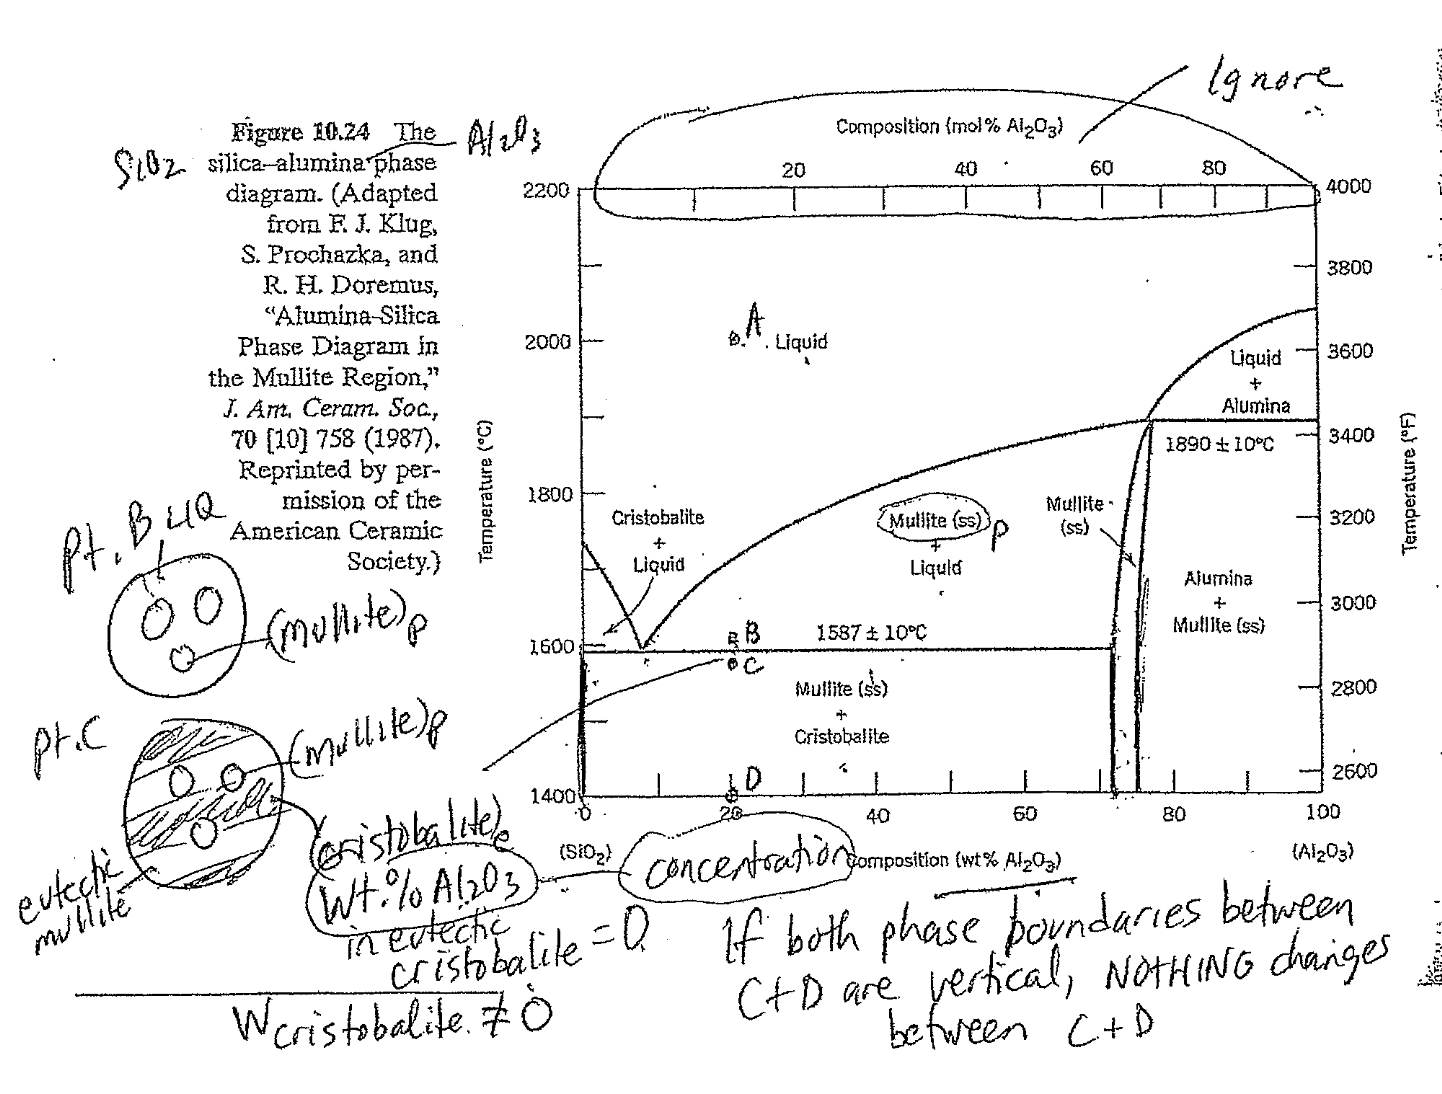 Ignore
Figure 10.24 The
silica–alumina phase
diagram. (Adapted
from F. J. Klug,
S. Prochazka, and
R. H. Doremus,
“Alumina-Silica
Phase Diagram in
the Mullite Region,”
J. Am. Ceram. Soc.,
70 [10] 758 (1987).
Reprinted by per-
mission of the
American Ceramic
Society.)
SiO2
Al2O3
Composition (mol% Al2O3)
20 40 60 80
2200
2000
1800
1600
1400
Temperature (°C)
4000
3800
3600
3400
3200
3000
2800
2600
Temperature (°F)
A
Liquid
Liquid
+
Alumina
1890 ± 10°C
Cristobalite
+
Liquid
Mullite (ss) p
+
Liquid
Mullite
(ss)
Alumina
+
Mullite (ss)
B
1587 ± 10°C
C
Mullite (ss)
+
Cristobalite
D
0 20 40 60 80 100
(SiO2)
Composition (wt% Al2O3)
(Al2O3)
Pt. B LIQ
(mullite)p
pt. C
(mullite)p
eutectic
mullite
(cristobalite)e
wt.% Al2O3
concentration
in eutectic
cristobalite = 0
Wcristobalite ≠ 0
If both phase boundaries between
C+D are vertical, NOTHING changes
between C+D